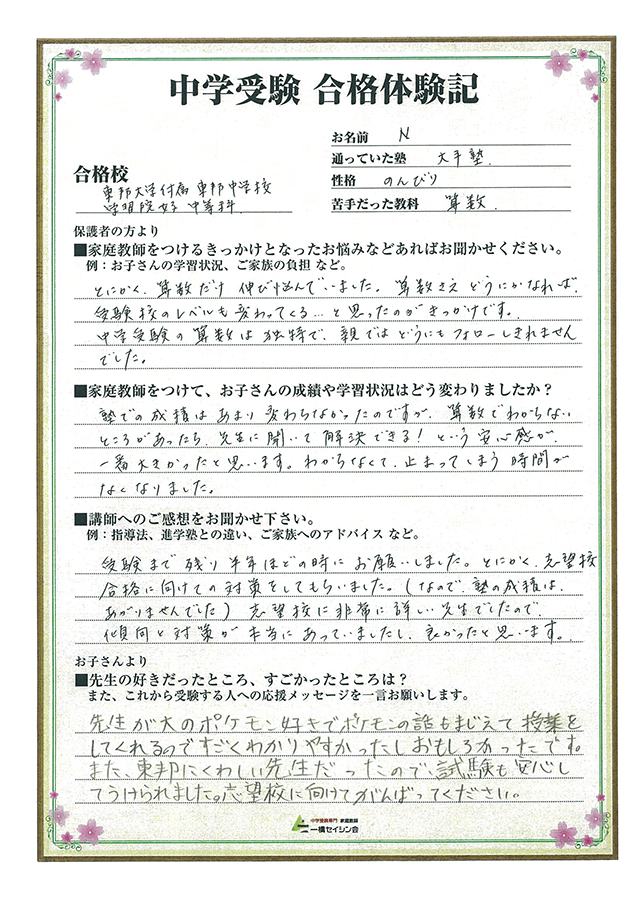 中学受験 合格体験記
お名前 N
通っていた塾 大手塾
性格 のんびり
苦手だった教科 算数
合格校
東邦大学付属東邦中学校
学習院女子中等科
保護者の方より
■家庭教師をつけるきっかけとなったお悩みなどあればお聞かせください。
例：お子さんの学習状況、ご家族の負担 など。
とにかく、算数だけ伸び悩んでいました。算数さえどうにかなれば、
受験校のレベルも変わってくる…と思ったのがきっかけです。
中学受験の算数は独特で、親ではどうにもフォローしきれません
でした。
■家庭教師をつけて、お子さんの成績や学習状況はどう変わりましたか？
塾での成績はあまり変わらなかったのですが、算数でわからない
ところがあったら、先生に聞いて解決できる！という安心感が
一番大きかったと思います。わからなくて、止まってしまう時間が
なくなりました。
■講師へのご感想をお聞かせ下さい。
例：指導法、進学塾との違い、ご家族へのアドバイス など。
受験まで残り半年ほどの時にお願いしました。とにかく、志望校
合格に向けての対策をしてもらいました。（なので、塾の成績は、
あがりませんでした）志望校に非常に詳しい先生でしたので、
傾向と対策が本当にあっていましたし、良かったと思います。
お子さんより
■先生の好きだったところ、すごかったところは？
また、これから受験する人への応援メッセージを一言お願いします。
先生が大のポケモン好きでポケモンの話もまじえて授業を
してくれるのですごくわかりやすかったしおもしろかったです。
また、東邦にくわしい先生だったので、試験も安心し
てうけられました。志望校に向けてがんばってください。
中学受験専門 家庭教師
一橋セイシン会